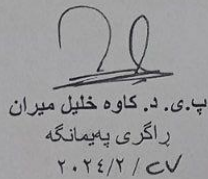 پ.ی. د. کاوه خلیل میران
ڕاگری پەیمانگە
٢٠٢٤/٢ / ٢٧